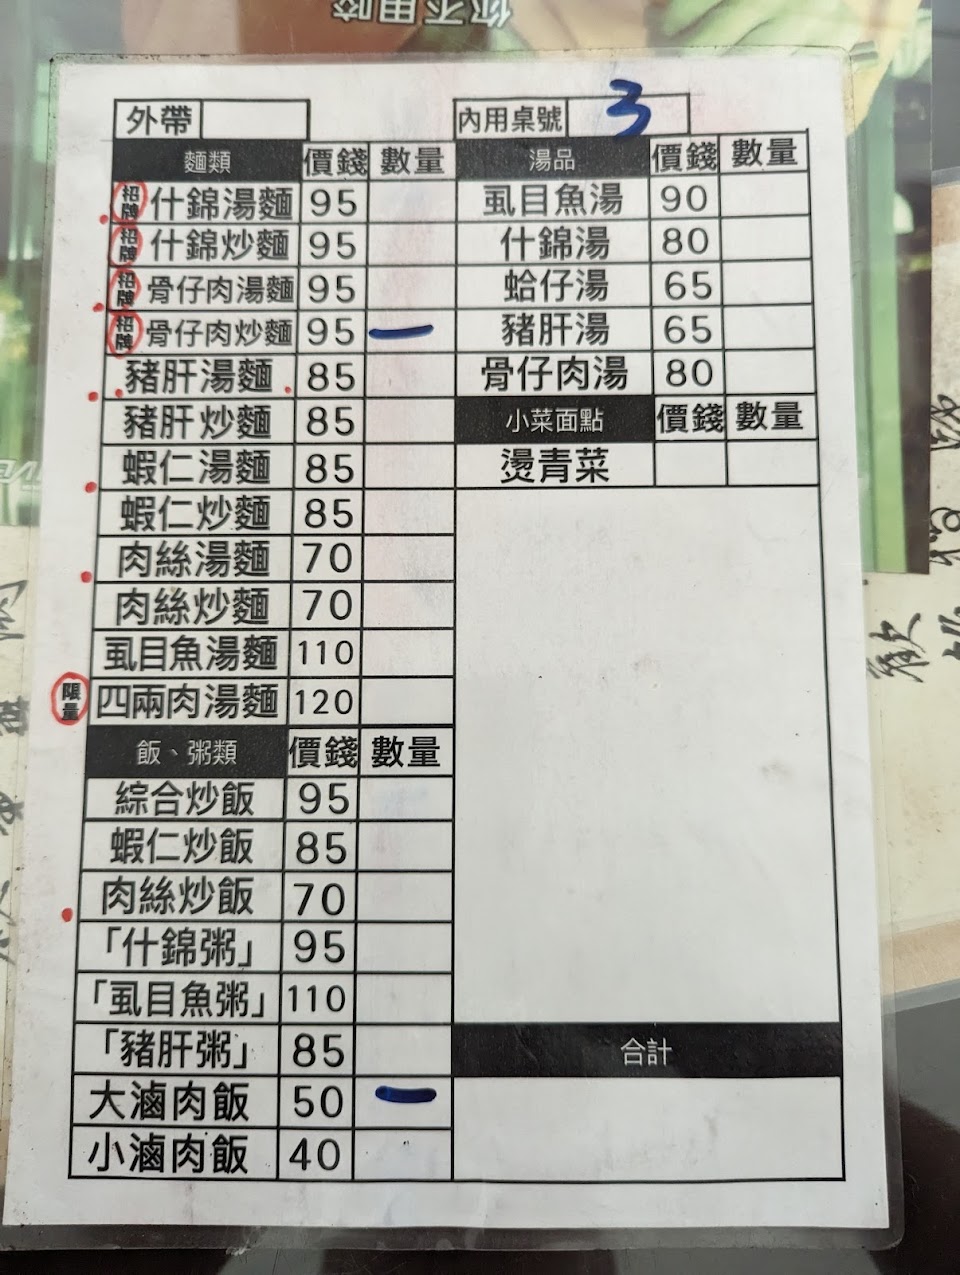 你不用咬
外帶
內用桌號 3
麵類 價錢 數量
招牌 什錦湯麵 95
招牌 什錦炒麵 95
招牌 骨仔肉湯麵 95
招牌 骨仔肉炒麵 95 一
豬肝湯麵 85
豬肝炒麵 85
蝦仁湯麵 85
蝦仁炒麵 85
肉絲湯麵 70
肉絲炒麵 70
虱目魚湯麵 110
限量 四兩肉湯麵 120
飯、粥類 價錢 數量
綜合炒飯 95
蝦仁炒飯 85
肉絲炒飯 70
「什錦粥」 95
「虱目魚粥」 110
「豬肝粥」 85
大滷肉飯 50 一
小滷肉飯 40
湯品 價錢 數量
虱目魚湯 90
什錦湯 80
蛤仔湯 65
豬肝湯 65
骨仔肉湯 80
小菜面點 價錢 數量
燙青菜
合計
歡